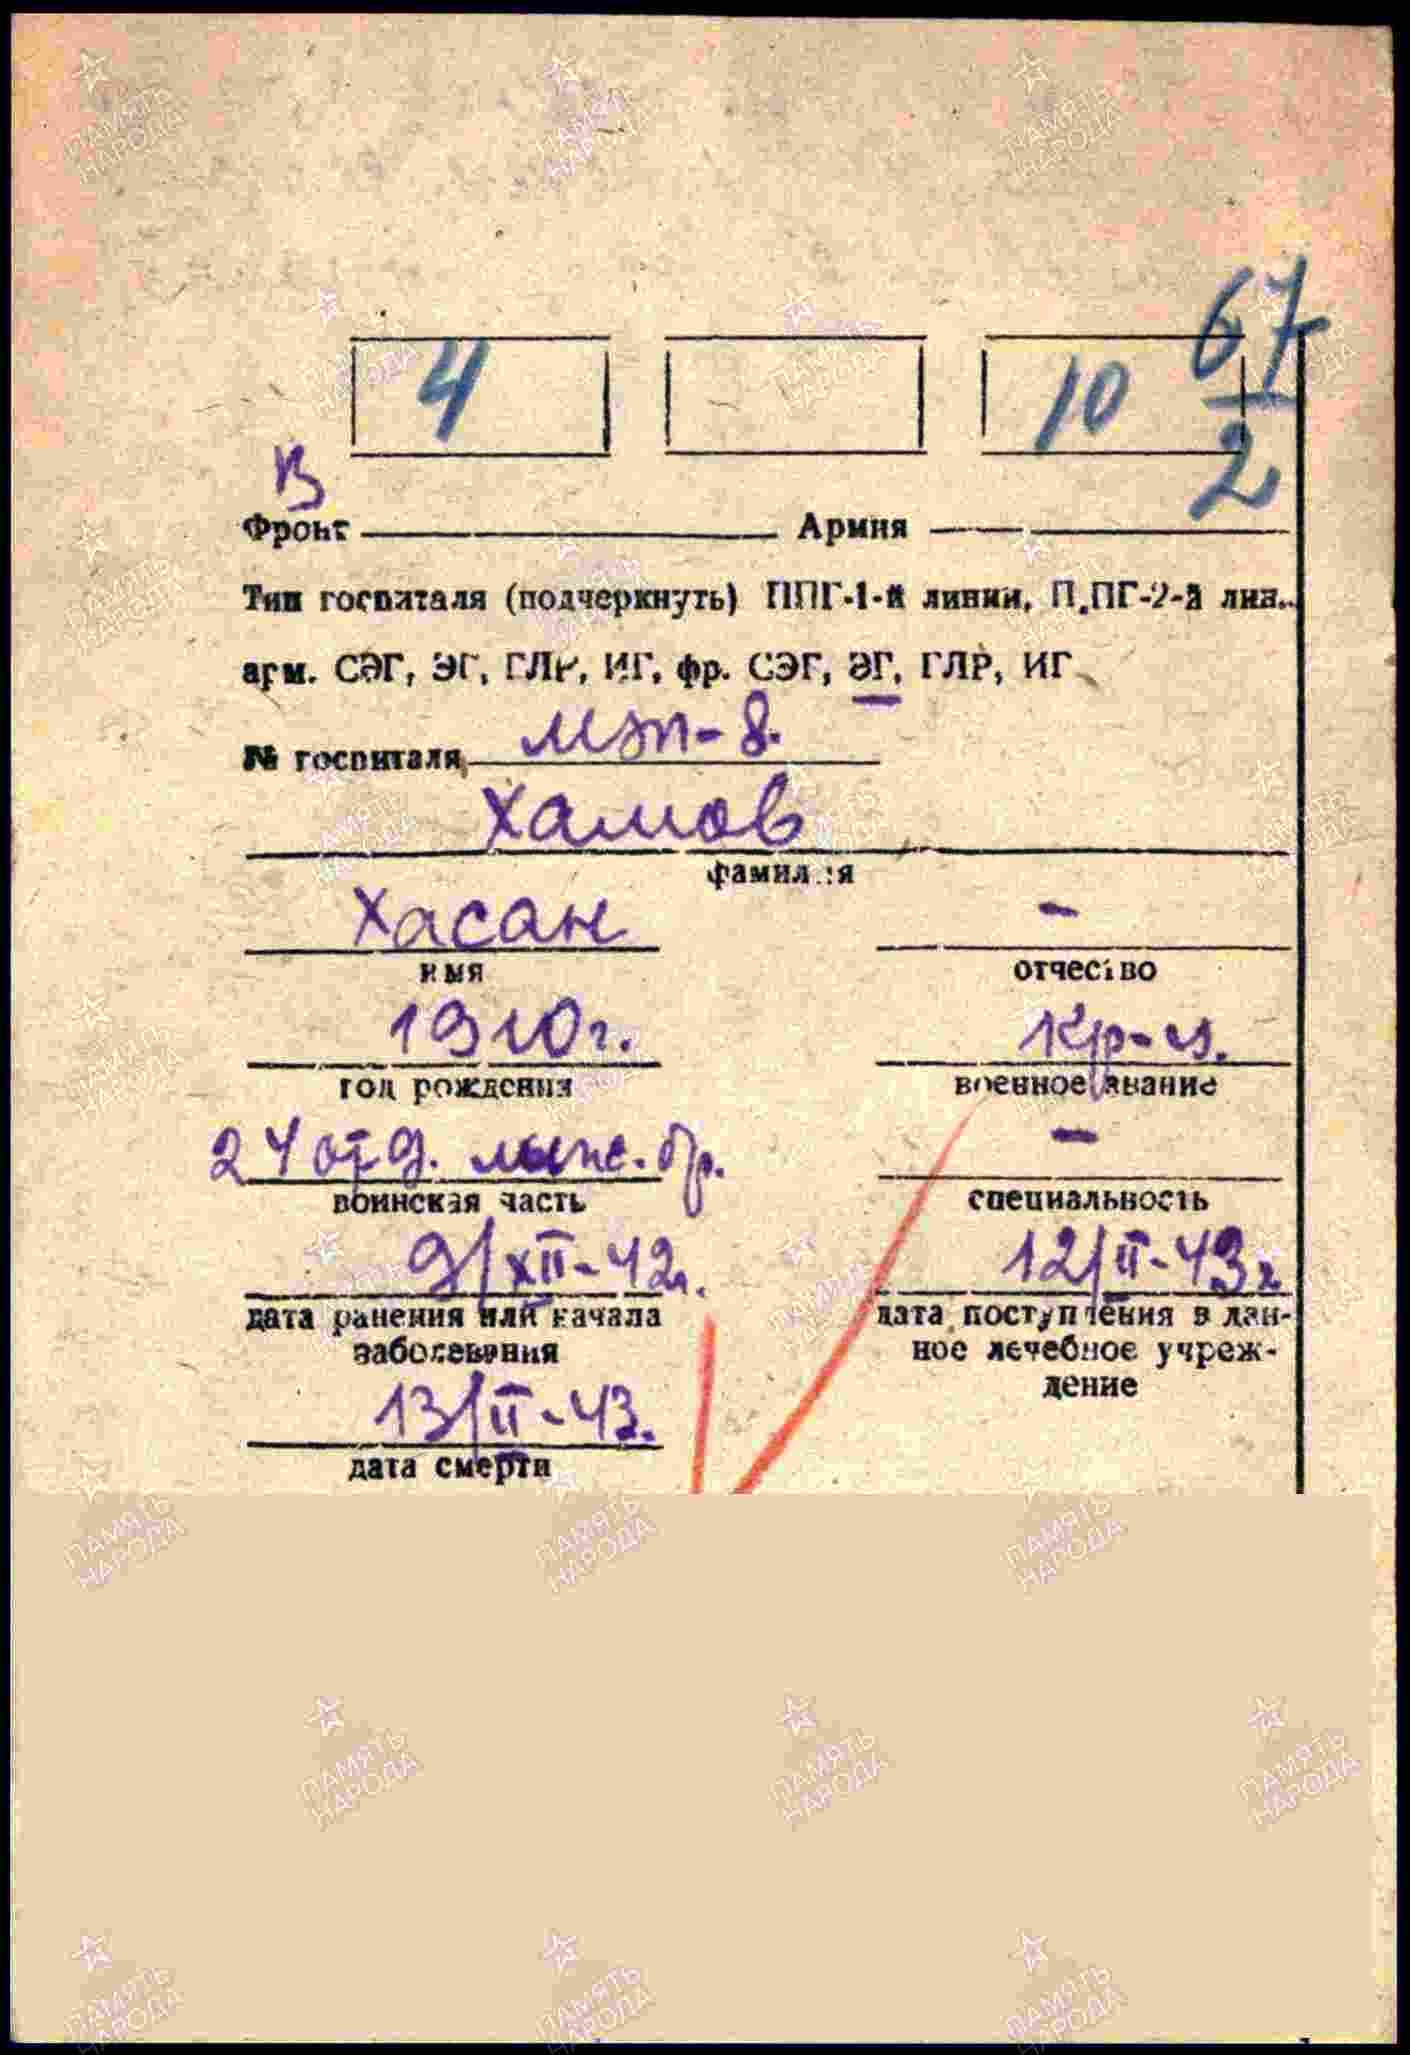 67
4 10
2
В
Фронт Армия
Тип госпиталя (подчеркнуть) ППГ-1-й линии, П.ПГ-2-й лин.
арм. СЭГ, ЭГ, ГЛР, ИГ, фр. СЭГ, ЭГ, ГЛР, ИГ
№ госпиталя МЭП-8.
Хамов
фамилия
Хасан -
имя отчество
1910г. Кр-ц.
год рождения военное звание
24 отд. лыж. бр. -
воинская часть специальность
9/XII-42г. 12/II-43г
дата ранения или начала дата поступления в дан-
заболевания ное лечебное учреж-
дение
13/II-43.
дата смерти
ПАМЯТЬ
НАРОДА